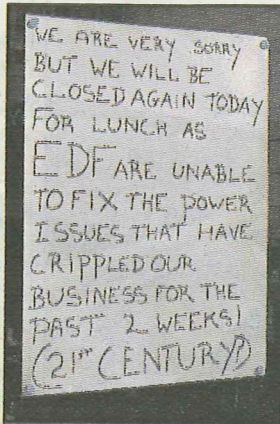 WE ARE VERY SORRY
BUT WE WILL BE
CLOSED AGAIN TODAY
FOR LUNCH AS
EDF ARE UNABLE
TO FIX THE POWER
ISSUES THAT HAVE
CRIPPLED OUR
BUSINESS FOR THE
PAST 2 WEEKS!
(21ST CENTURY?)